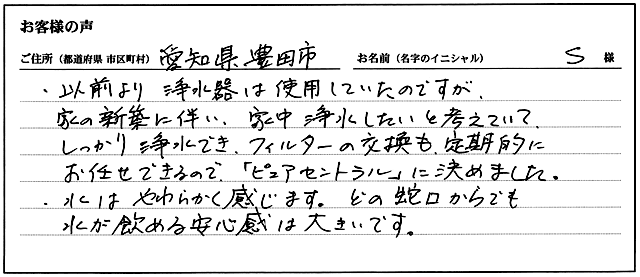 お客様の声
ご住所（都道府県 市区町村） 愛知県豊田市 お名前（名字のイニシャル） S 様
・以前より浄水器は使用していたのですが、
家の新築に伴い、家中浄水したいと考えていて、
しっかり浄水でき、フィルターの交換も、定期的に
お任せできるので、「ピュアセントラル」に決めました。
・水はやわらかく感じます。どの蛇口からでも
水が飲める安心感は大きいです。